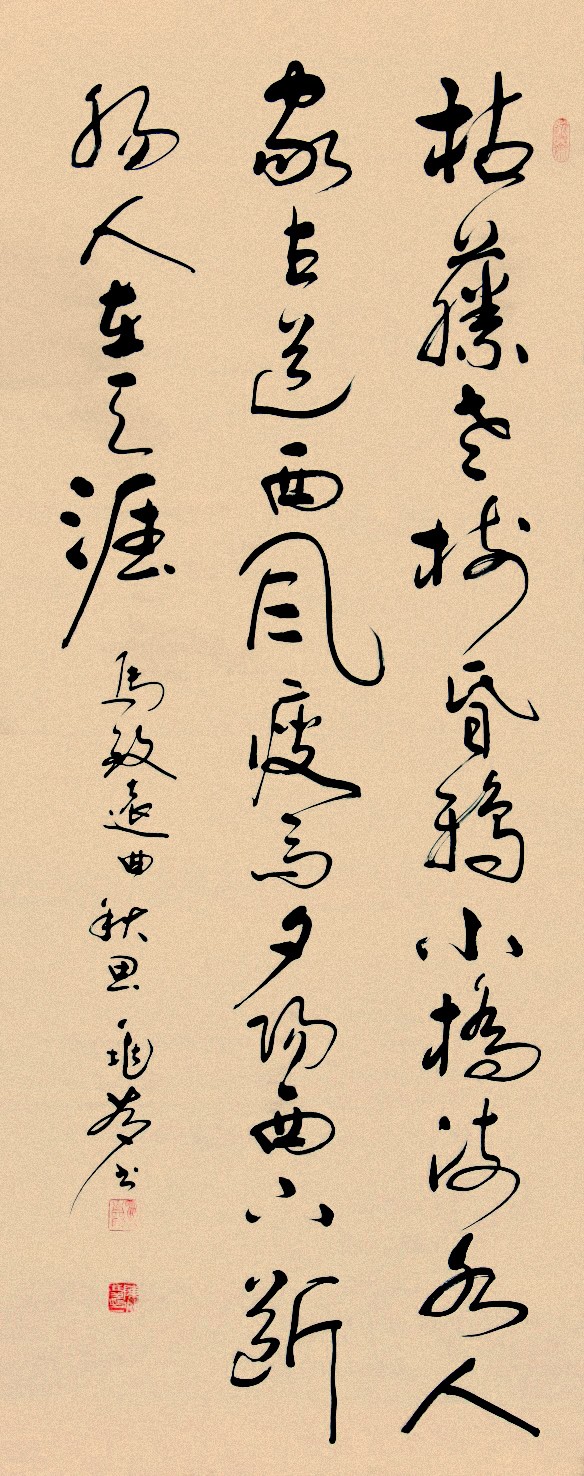 枯藤老樹昏鴉小橋流水人
家古道西風瘦馬夕陽西下斷
腸人在天涯 馬致遠曲秋思 書